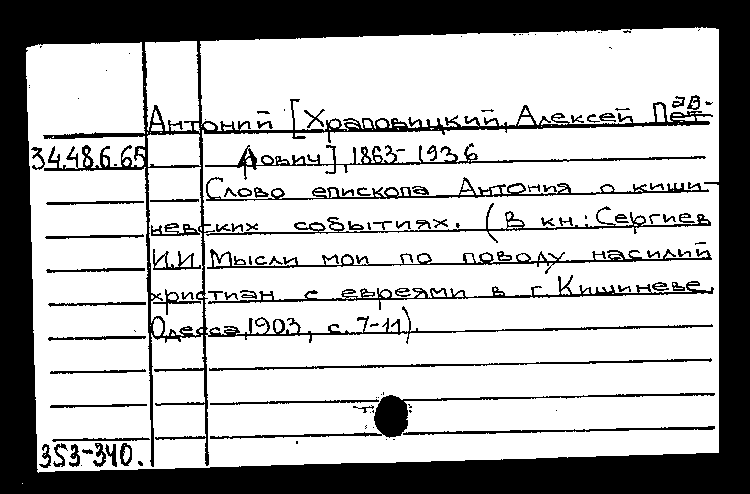 Антоний [Храповицкий, Алексей Пав-
34.48.6.65. лович], 1863-1936
Слово епископа Антония о киши-
невских событиях. (В кн.: Сергиев
И.И. Мысли мои по поводу насилий
христиан с евреями в г. Кишиневе.
Одесса, 1903, с. 7-11).
353-340.